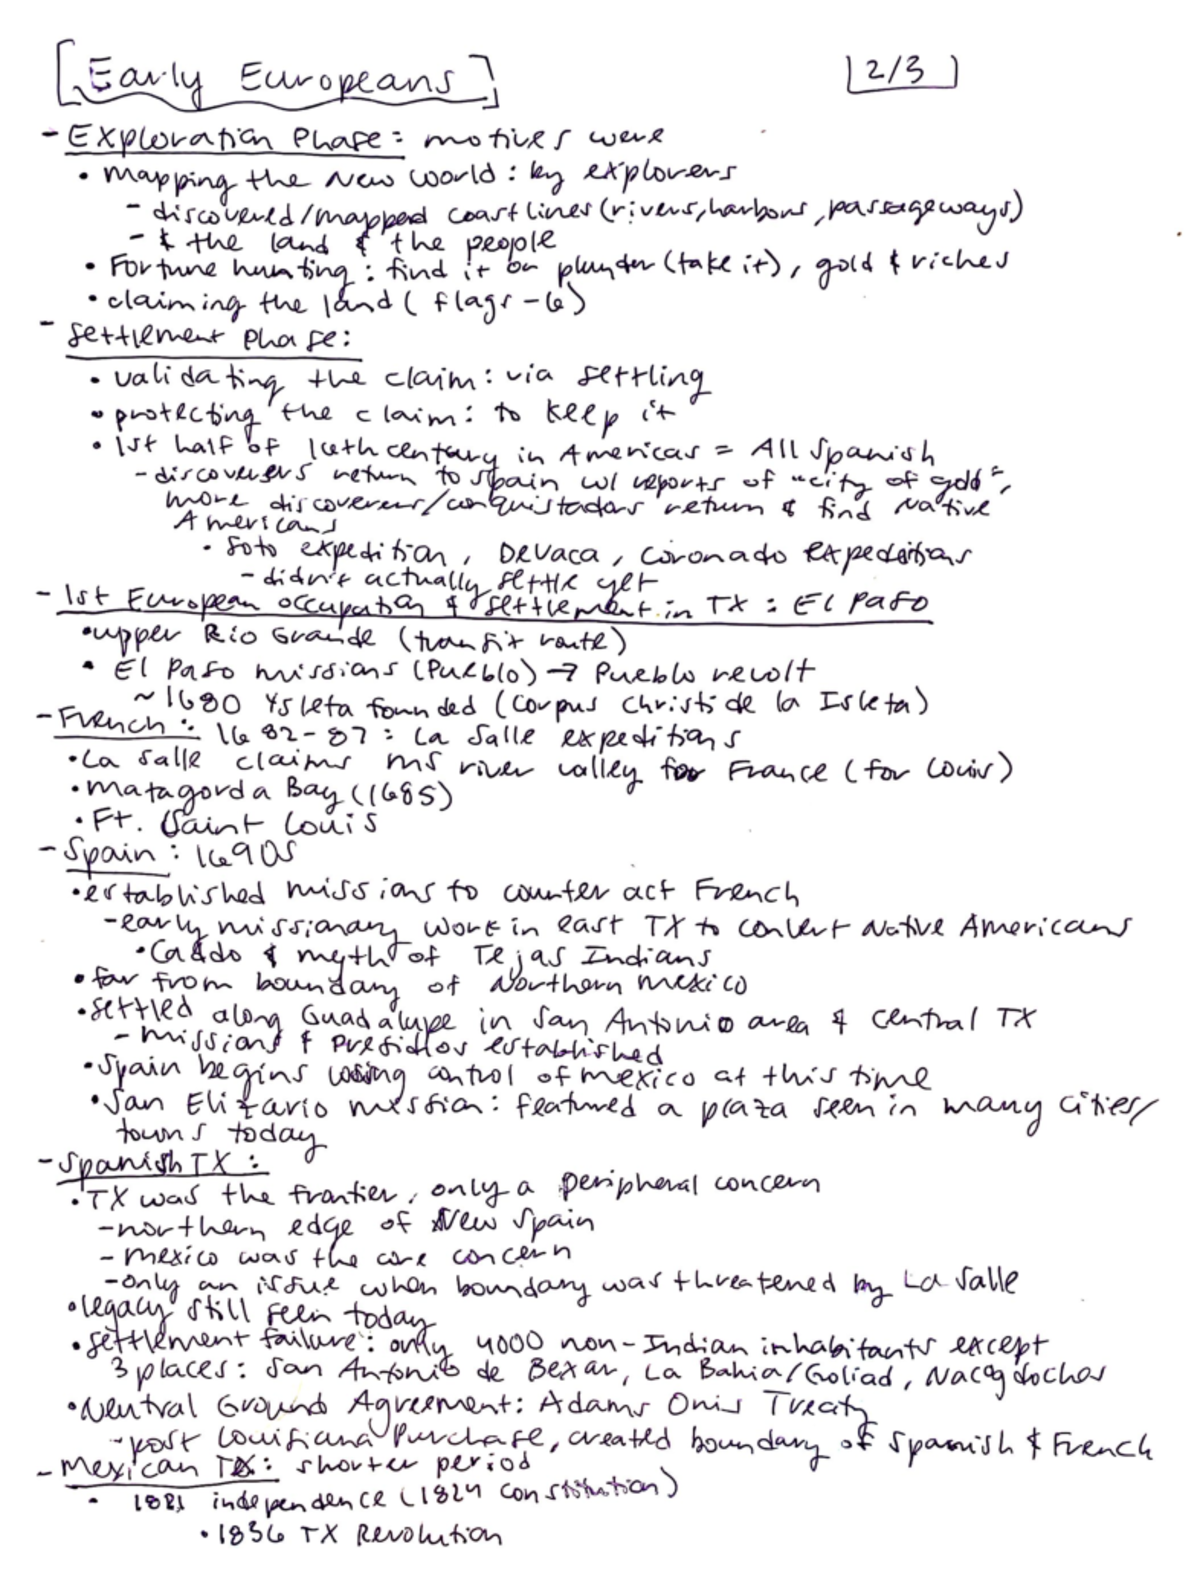 [Early Europeans] 2/3
- Exploration Phase: motives were
• mapping the New World: by explorers
- discovered/mapped coastlines (rivers, harbors, passageways)
- & the land & the people
• Fortune hunting: find it or plunder (take it), gold & riches
• claiming the land (flags - 6)
- Settlement Phase:
• validating the claim: via settling
• protecting the claim: to keep it
• 1st half of 16th century in Americas = All Spanish
- discoverers return to Spain w/ reports of "city of gold",
more discoverers/conquistadors return & find Native
Americans
• Soto expedition, DeVaca, Coronado expeditions
- didn't actually settle yet
- 1st European occupation & settlement in TX: El Paso
• upper Rio Grande (transit route)
• El Paso missions (Pueblo) → Pueblo revolt
~ 1680 Ysleta founded (Corpus Christi de la Isleta)
- French: 1682-87: La Salle expeditions
• La Salle claims MS river valley for France (for Louis)
• Matagorda Bay (1685)
• Ft. Saint Louis
- Spain: 1690s
• established missions to counter act French
- early missionary work in east TX to convert Native Americans
• Caddo & myth of Tejas Indians
• far from boundary of Northern Mexico
• settled along Guadalupe in San Antonio area & central TX
- missions & presidios established
• Spain begins losing control of Mexico at this time
• San Elizario mission: featured a plaza seen in many cities/
towns today
- Spanish TX:
• TX was the frontier, only a peripheral concern
- northern edge of New Spain
- Mexico was the core concern
- only an issue when boundary was threatened by La Salle
• legacy still seen today
• settlement failure: only 4000 non-Indian inhabitants except
3 places: San Antonio de Bexar, La Bahia/Goliad, Nacogdoches
• Neutral Ground Agreement: Adams Onis Treaty
- post Louisiana Purchase, created boundary of Spanish & French
- Mexican TX: shorter period
• 1821 independence (1824 constitution)
• 1836 TX Revolution